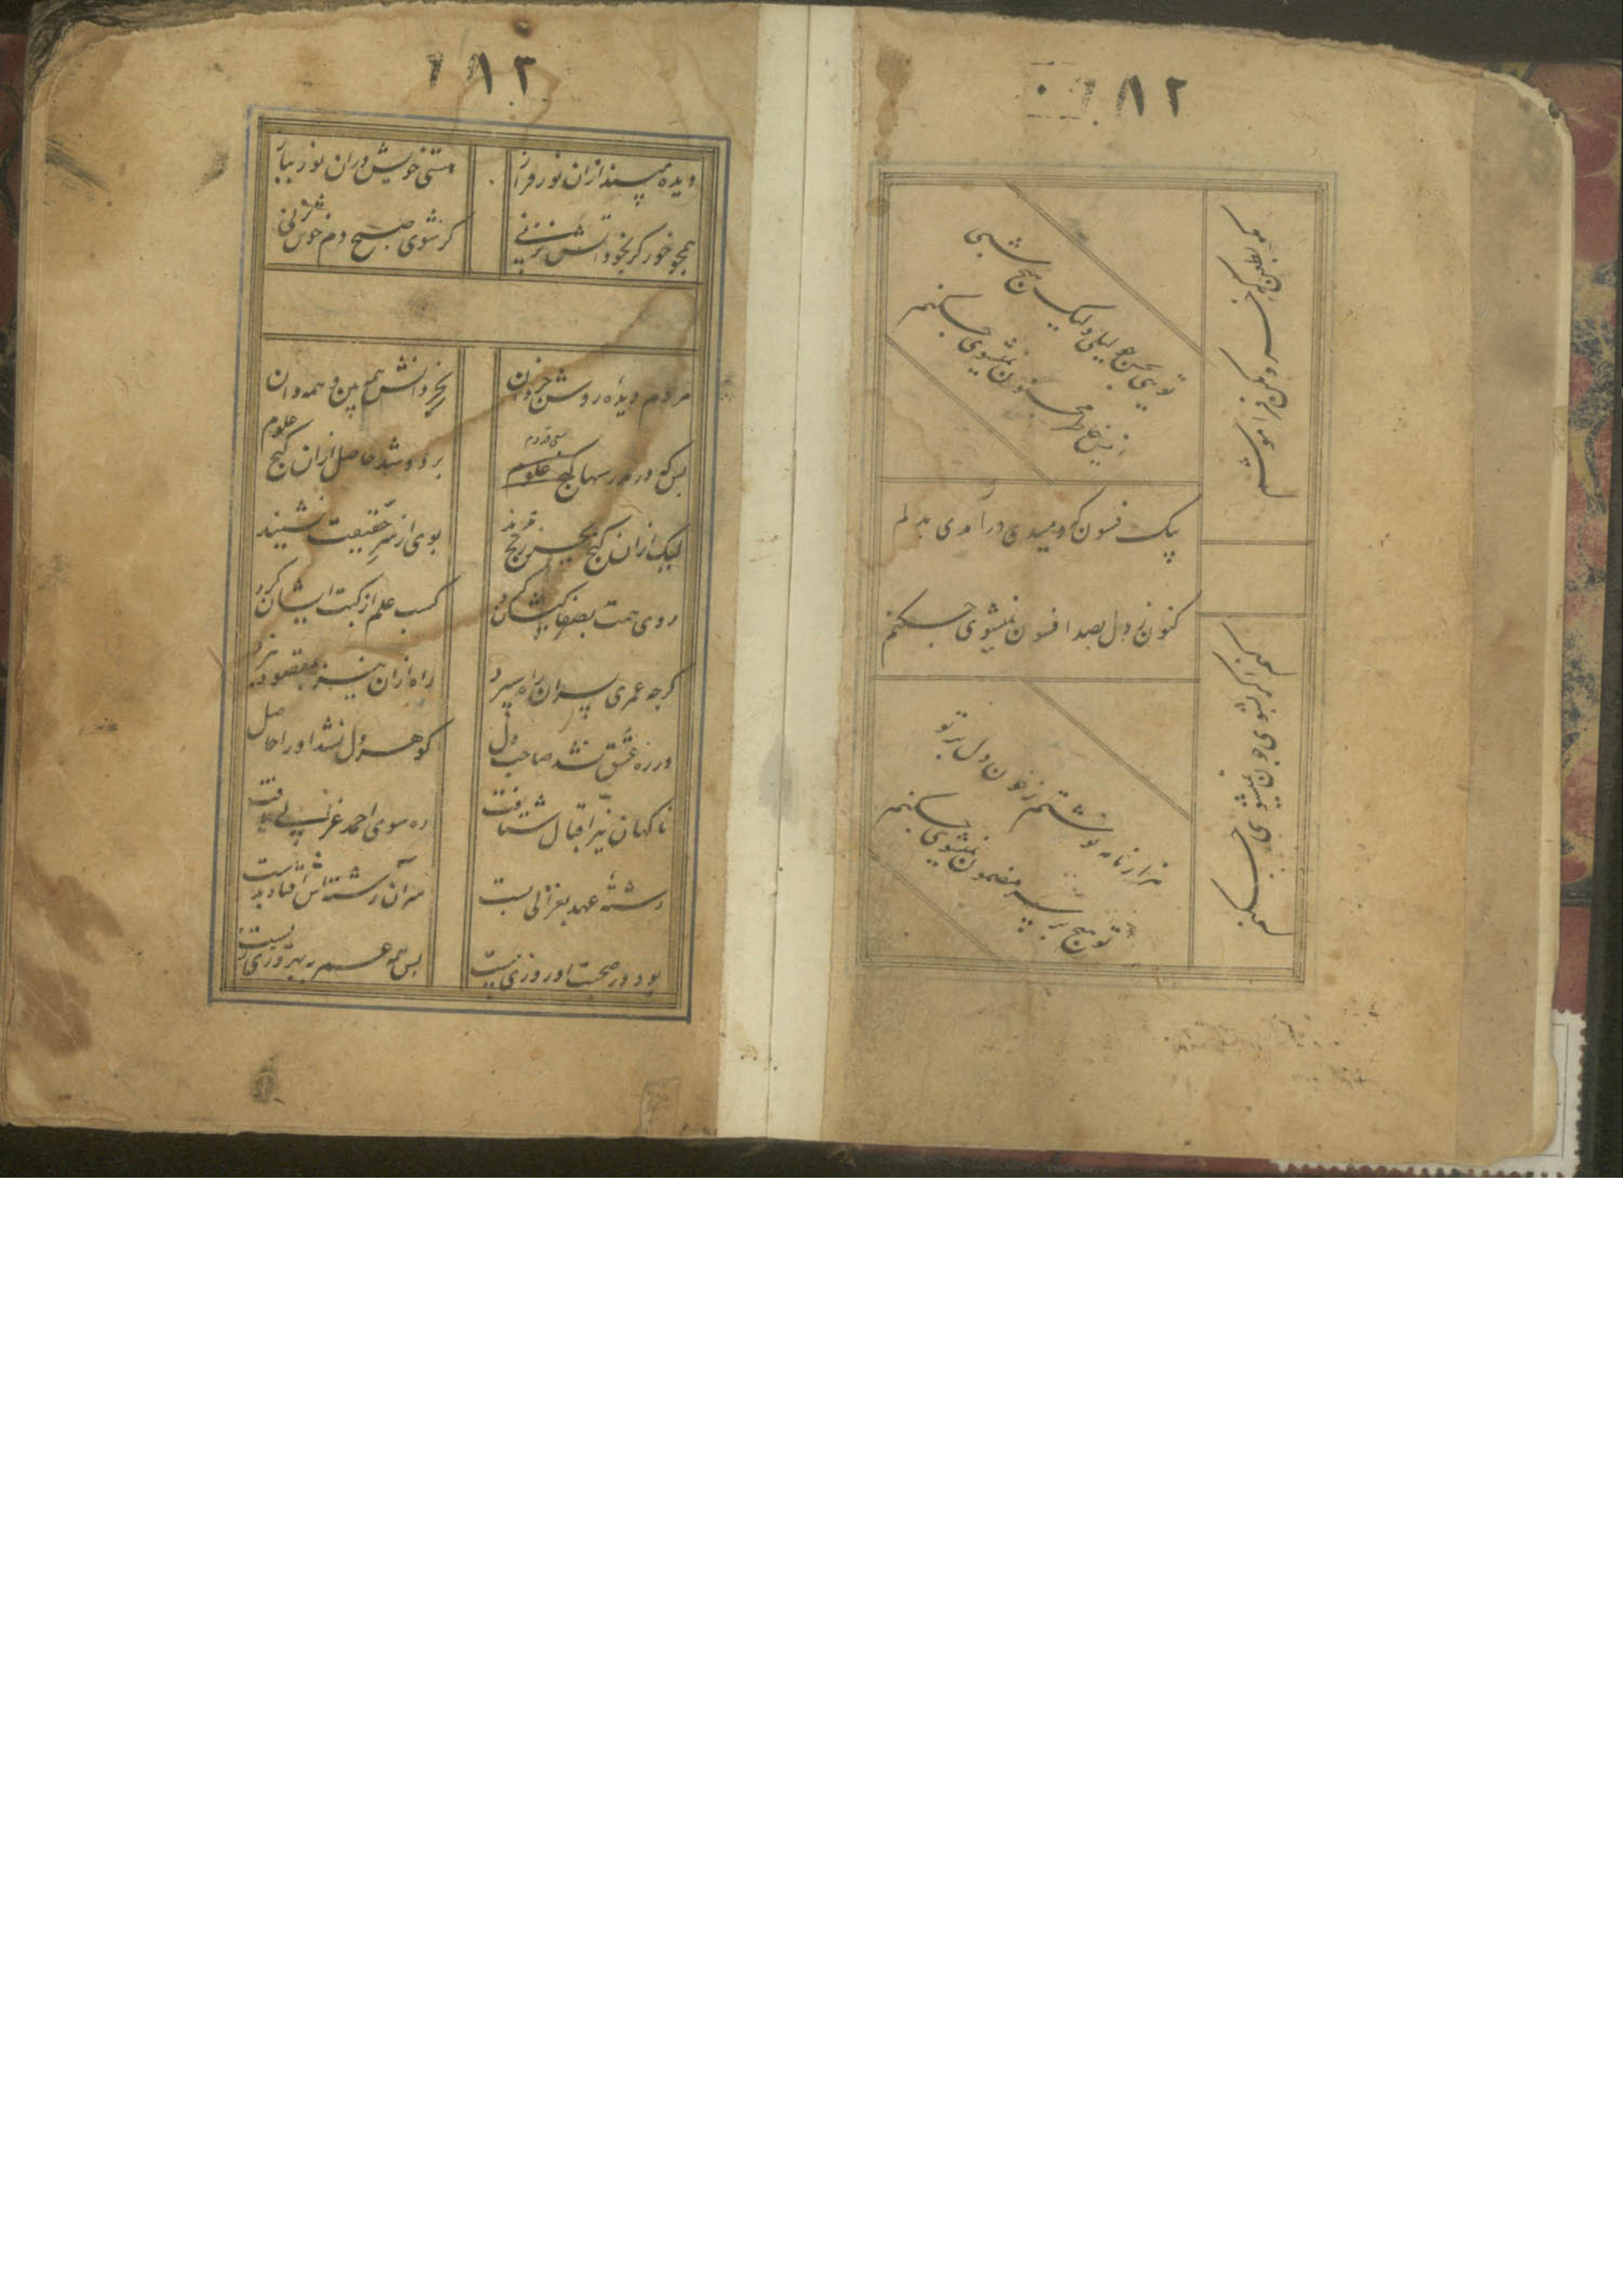 ۱۸۲
تویی بحسن چو لیلی ولیک هیچ شبی
انیس خاطر مجنون نمیشوی چکنم
بیک فسون که دمیدی درآمدی بدلم
کنون ز دل بصد افسون نمیشوی چکنم
هزار نامه نوشتم ز خون دل بر تو
تو هیچ بر سر مضمون نمیشوی چکنم
مکن فراموشم
نمیشوی چکنم
۱۸۳
دیده مپسند ازان نور فراز
هستی خویش دران نور بباز
همچو خور گر بخود آتش نزنی
گر شوی صبح دم خوش نزنی
مردم دیده روشن خردان
بخرد دانش همه بین و همه دان
بس که در مدرسها گنج علوم
برد و شد حاصل ازان گنج علوم
لیک ازان گنج بجز رنج ندید
بوی از سر حقیقت نشنید
روی همت بصفا کیشان کرد
کسب علم از کتب ایشان کرد
گرچه عمری پی سران راه سپرد
راه ازان نیز بمقصود نبرد
در ره عشق نشد صاحب دل
گوهر دل نشد او را حاصل
ناگهان نیر اقبال شتافت
ره سوی احمد غزالی یافت
رشته عهد بغزالی بست
سر آن رشته اش افتاد بدست
بود در صحبت او روزی بیست
بس همه عمر به بهروزی زیست